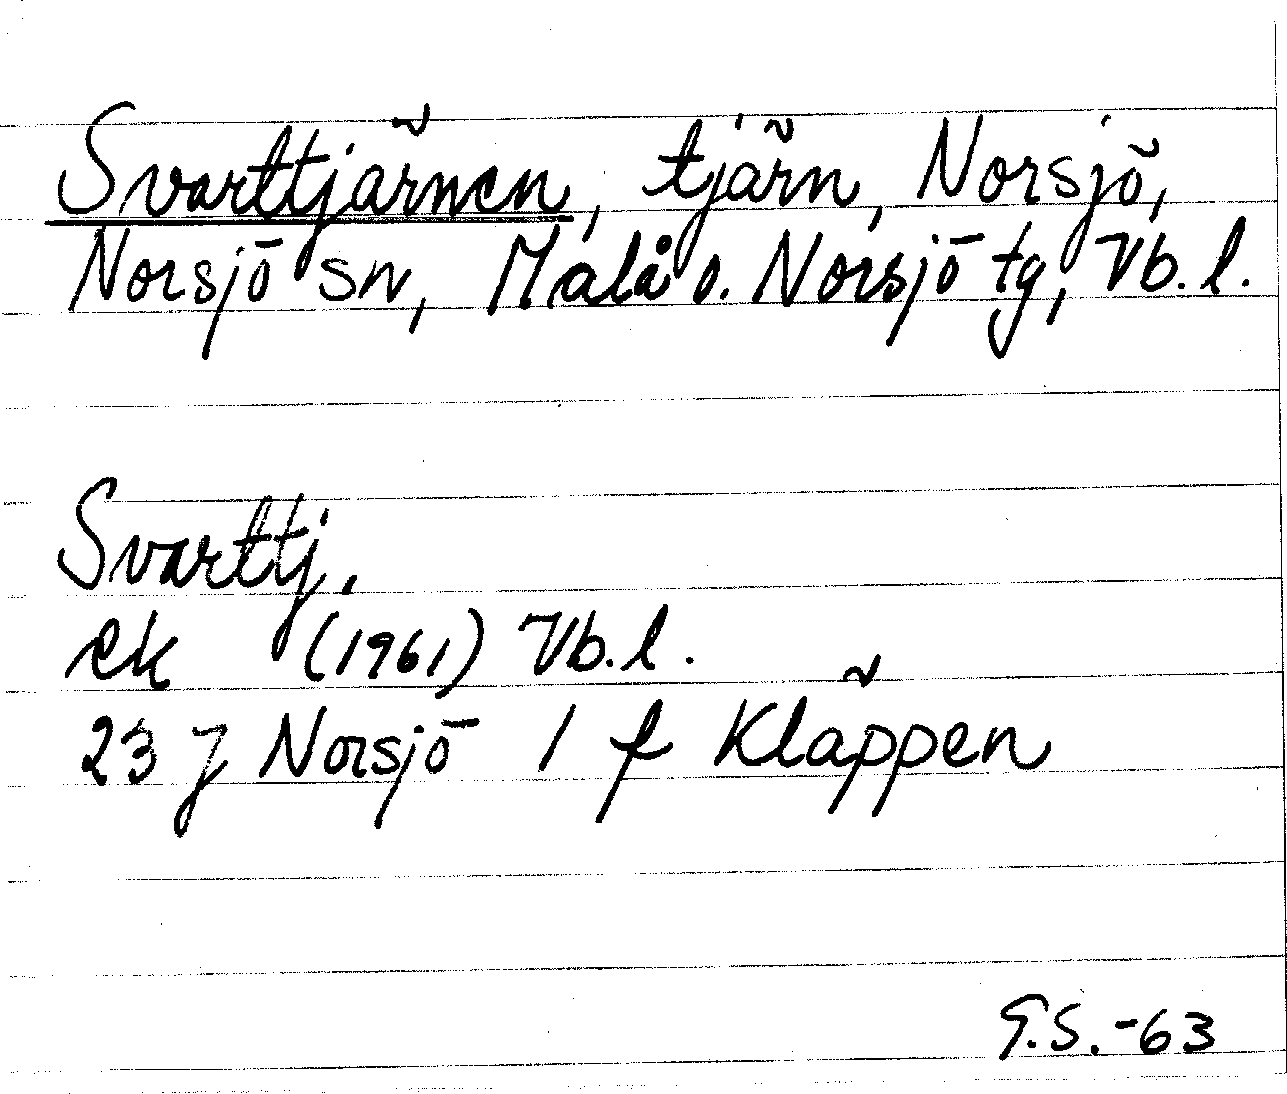 Svarttjärnen, tjärn, Norsjö,
Norsjö sn, Malå o. Norsjö tg, Vb. l.
Svarttj.
ek (1961) Vb. l.
23 J Norsjö 1 f Kläppen
G.S. -63